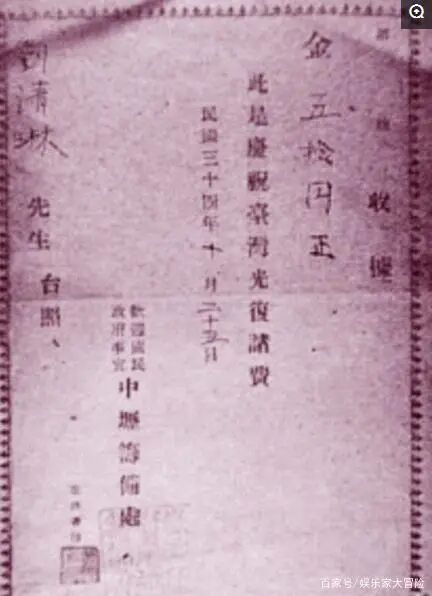 收據
金五拾円正
此是慶祝臺灣光復諸費
民國三十四年十月二十五日
歡迎國民
政府事官
中壢籌備處
先生台照
百家号/娱乐家大冒险